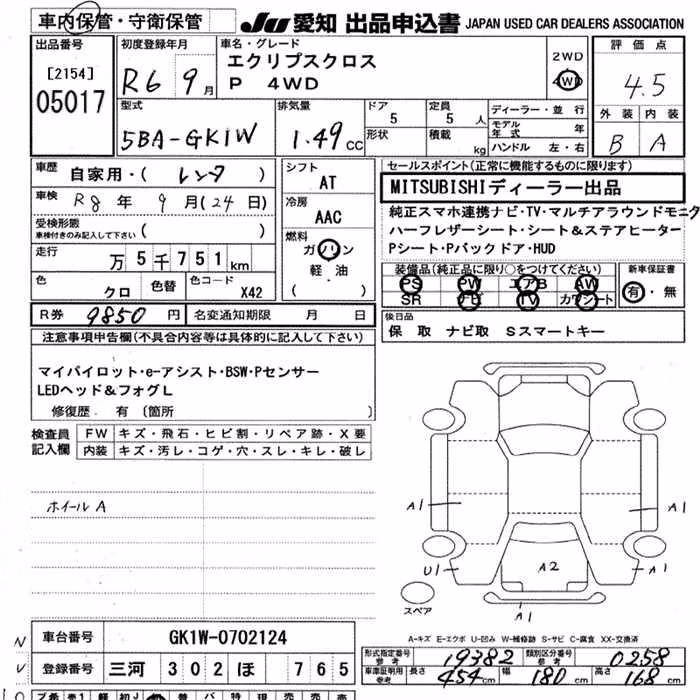 車内保管・守衛保管 JU 愛知 出品申込書 JAPAN USED CAR DEALERS ASSOCIATION
出品番号
[2154]
05017
初度登録年月
R6 9月
車名・グレード
エクリプスクロス
P 4WD
2WD
4WD
評価点
4.5
外装 内装
B A
型式
5BA-GK1W
排気量
1.49cc
ドア
5
定員
5人
形状
積載
kg
ディーラー・並行
モデル年式 年
ハンドル 左・右
車歴
自家用・( レンタ )
車検 R8年 9月(24日)
受検形態
車検付きのみ記入して下さい ( )
走行
万5千751km
色
クロ
色替
色コード
X42
シフト
AT
冷房
AAC
燃料
ガソリン
軽・油
( )
R券 9850円 名変通知期限 月 日
注意事項申告欄(不具合内容等は具体的に記入して下さい)
マイパイロット・e-アシスト・BSW・Pセンサー
LEDヘッド&フォグL
修復歴・有(箇所 )
セールスポイント(正常に機能するものに限ります)
MITSUBISHIディーラー出品
純正スマホ連携ナビ・TV・マルチアラウンドモニタ
ハーフレザーシート・シート&ステアヒーター
Pシート・Pバックドア・HUD
装備品(純正品に限り○をつけてください)
PS PW エアB AW
SR ナビ TV カワシート
新車保証書
有・無
後日品
保 取 ナビ取 Sスマートキー
検査員記入欄
FW キズ・飛石・ヒビ割・リペア跡・X要
内装 キズ・汚レ・コゲ・穴・スレ・キレ・破レ
ホイールA
A1
A1
U1
A2
A1
A1
スペア
A-キズ E-エクボ U-凹み W-補修跡 S-サビ C-腐食 XX-交換済
車台番号 GK1W-0702124
登録番号 三河 302 ほ 765
形式指定番号 参考 19382 類別区分番号 参考 0258
車庫証明用参考 長さ 454cm 幅 180cm 高さ 168cm